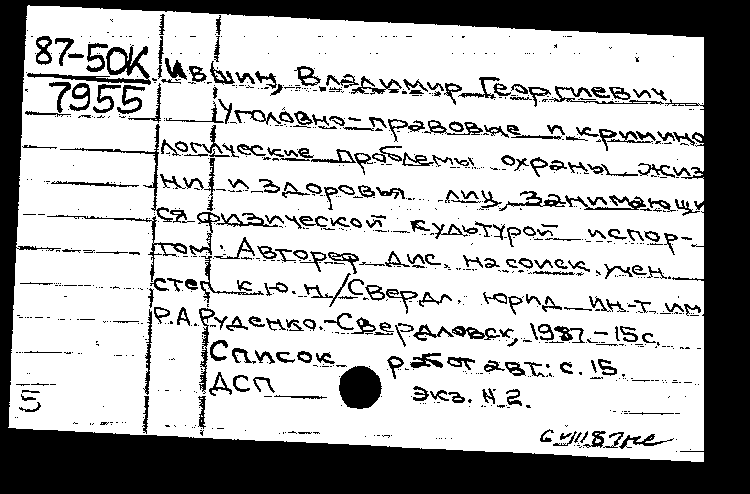 87-50К
7955
Ившин, Владимир Георгиевич
Уголовно-правовые и кримино
логические проблемы охраны жиз
ни и здоровья лиц, занимающи
ся физической культурой и спор-
том: Автореф. дис. на соиск. учен.
степ к.ю.н./Свердл. юрид. ин-т им.
Р.А.Руденко.-Свердловск, 1987.-15с.
Список работ авт.: с. 15.
ДСП экз. N 2.
5